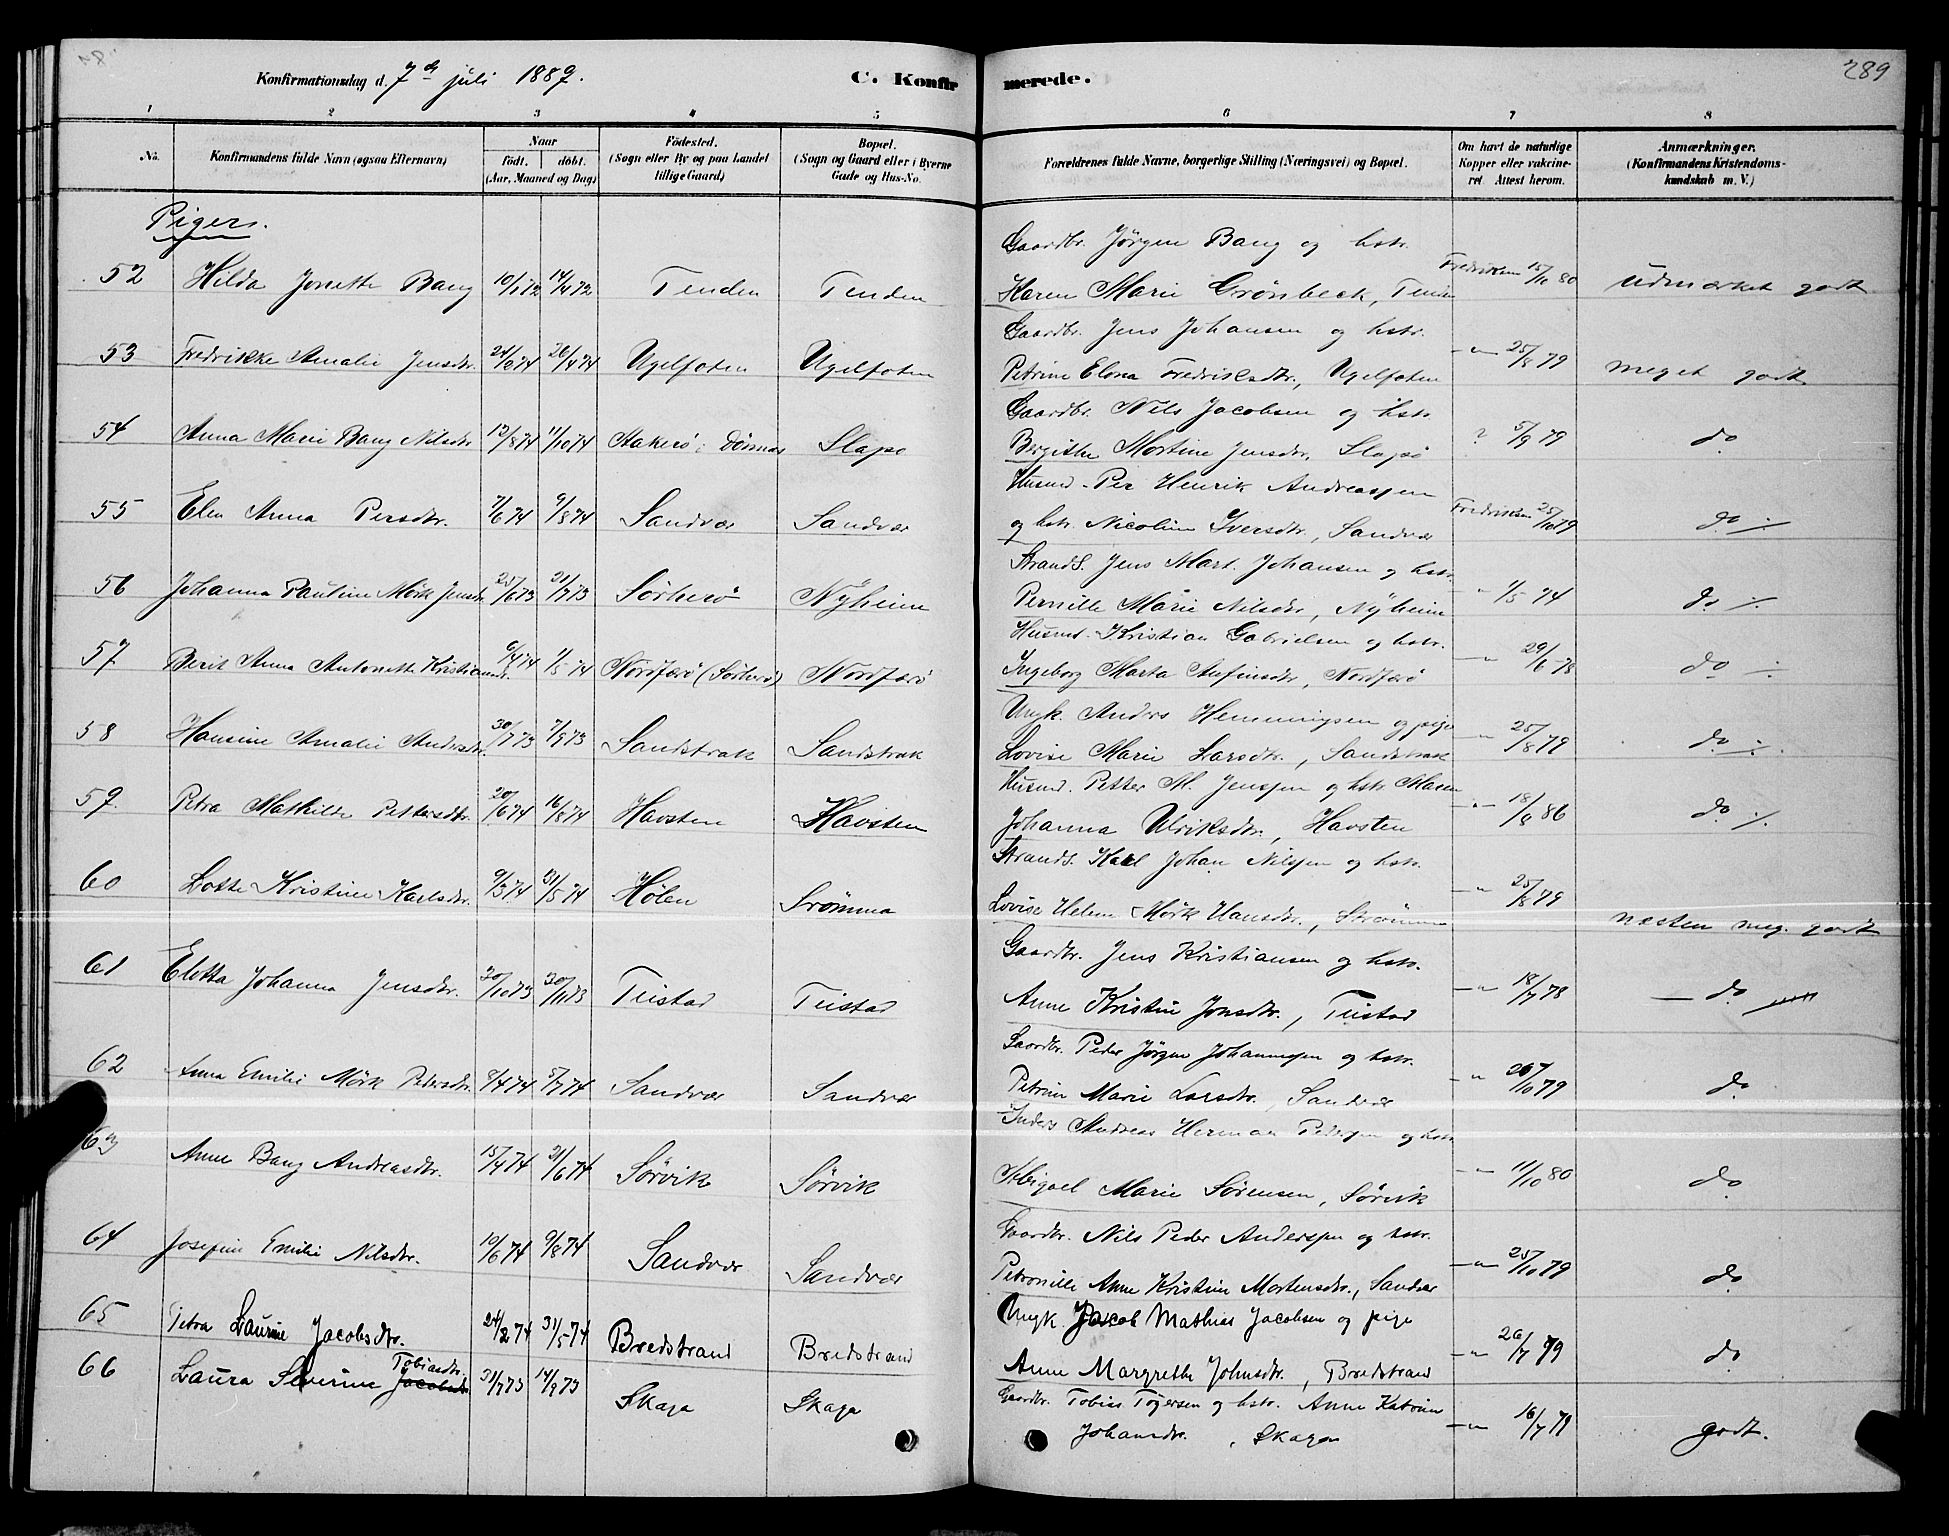 Konfirmationsdag d. 7de juli 1889. C. Konfir merede. 289
1 2 3 4 5 6 7 8
No. Konfirmandens fulde Navn (ogsaa Efternavn) Naar født. døbt. (Aar, Maaned og Dag) Fødested. (Sogn eller By og paa Landet tillige Gaard) Bopæl. (Sogn og Gaard eller i Byerne Gade og Hus-No. Forældrenes fulde Navne, borgerlige Stilling (Næringsvei) og Bopæl. Om havt de naturlige Kopper eller vakcineret. Attest herom. Anmærkninger. (Konfirmandens Kristendomskundskab m. V.)
Piger.
Gaardbr. Jörgen Bang og hstr.
52 Hilda Jonette Bang 10/1 72 14/4 72 Tenden Tenden Karen Marie Grönbeck, Tenden 15/10 80 Udmærket godt
Gaardbr. Jens Johansen og hstr.
53 Fredrikke Amalie Jensdtr. 24/2 74 26/4 74 Ugelfoten Ugelfoten Petrine Elona Fredriksdtr., Ugelfoten -"- 25/8 79 meget godt
Gaardbr. Nils Jacobsen og hstr.
54 Anna Marie Bang Nilsdtr. 12/8 74 11/10 74 Aakerö i Dönnes Slapö Bergithe Martine Jensdtr. Slapö ? 5/9 79 do
Husmd. Per Henrik Andreassen
55 Elen Anna Persdtr. 7/6 74 9/8 74 Sandvær Sandvær og hstr. Nicoline Iversdtr., Sandvær 25/10 79 do
Strands. Jens Mart. Johansen og hstr.
56 Johanna Pauline Mörk Jensdtr. 25/6 73 21/7 73 Sörherö Nyheim Pernille Marie Nilsdtr., Nyheim " 1/5 74 do
Husmd. Kristian Gabrielsen og hstr.
57 Berit Anna Antonette Kristiansdtr. 6/4 74 1/5 74 Nordfærö (Sörherö) Nordfærö Ingeborg Marta Anfinsdtr., Nordfærö -"- 29/6 78 do
Ungk. Anders Hemmingsen og pige
58 Hansine Amalie Andersdtr. 30/7 73 7/9 73 Sandstrak Sandstrak Lovise Marie Larsdtr., Sandstrak -"- 25/8 79 do
Husmd. Petter M. Jenssen og hstr. Maren
59 Petra Mathilde Pettersdtr. 20/6 74 16/8 74 Havsten Havsten Johanna Ulriksdtr., Havsten -"- 18/8 86 do
Strands. Karl Johan Nilssen og hstr.
60 Lotte Kristine Karlsdtr. 9/3 74 31/5 74 Hölen Srömma Lovise Helene Mörk Hansdtr., Strömma -"- 25/8 79 næsten meg. godt
Gaardbr. Jens Kristiansen og hstr.
61 Elotta Johanna Jensdtr. 20/10 73 30/11 73 Teistad Teistad Anne Kristine Jonsdtr., Teistad -"- 18/7 78 do
Gaardbr. Peder Jörgen Johannessen og hstr.
62 Anna Emilie Mörk Petersdtr. 8/4 74 5/7 74 Sandvær Sandvær Petrine Marie Larsdtr., Sandvær -"- 10 79 do
Inders Andreas Herman Pedersen og hstr.
63 Anne Bang Andreasdtr. 15/4 74 21/6 74 Sörvik Sörvik Abigael Marie Sörensen, Sörvik -"- 11/10 80 do
Gaardbr. Nils Peder Anderssen og hstr.
64 Josefine Emilie Nilsdtr. 10/6 74 9/8 74 Sandvær Sandvær Petronille Anne Kristine Mortensdtr., Sandvær -"- 25/10 79 do
Ungk. Jacob Mathias Jacobsen og pige
65 Petra Laurine Jacobsdtr. 24/2 74 31/5 74 Bredstrand Bredstrand Anne Margrethe Johnsdtr., Bredstrand -"- 26/7 79 do
Tobiasdtr.
66 Laura Severine Jacobsdtr. 31/7 73 14/9 73 Skaga Skaga Gaardbr. Tobias Tögersen og hstr. Anne Katrine
Johansdtr., Skagen -"- 16/7 79 godt.